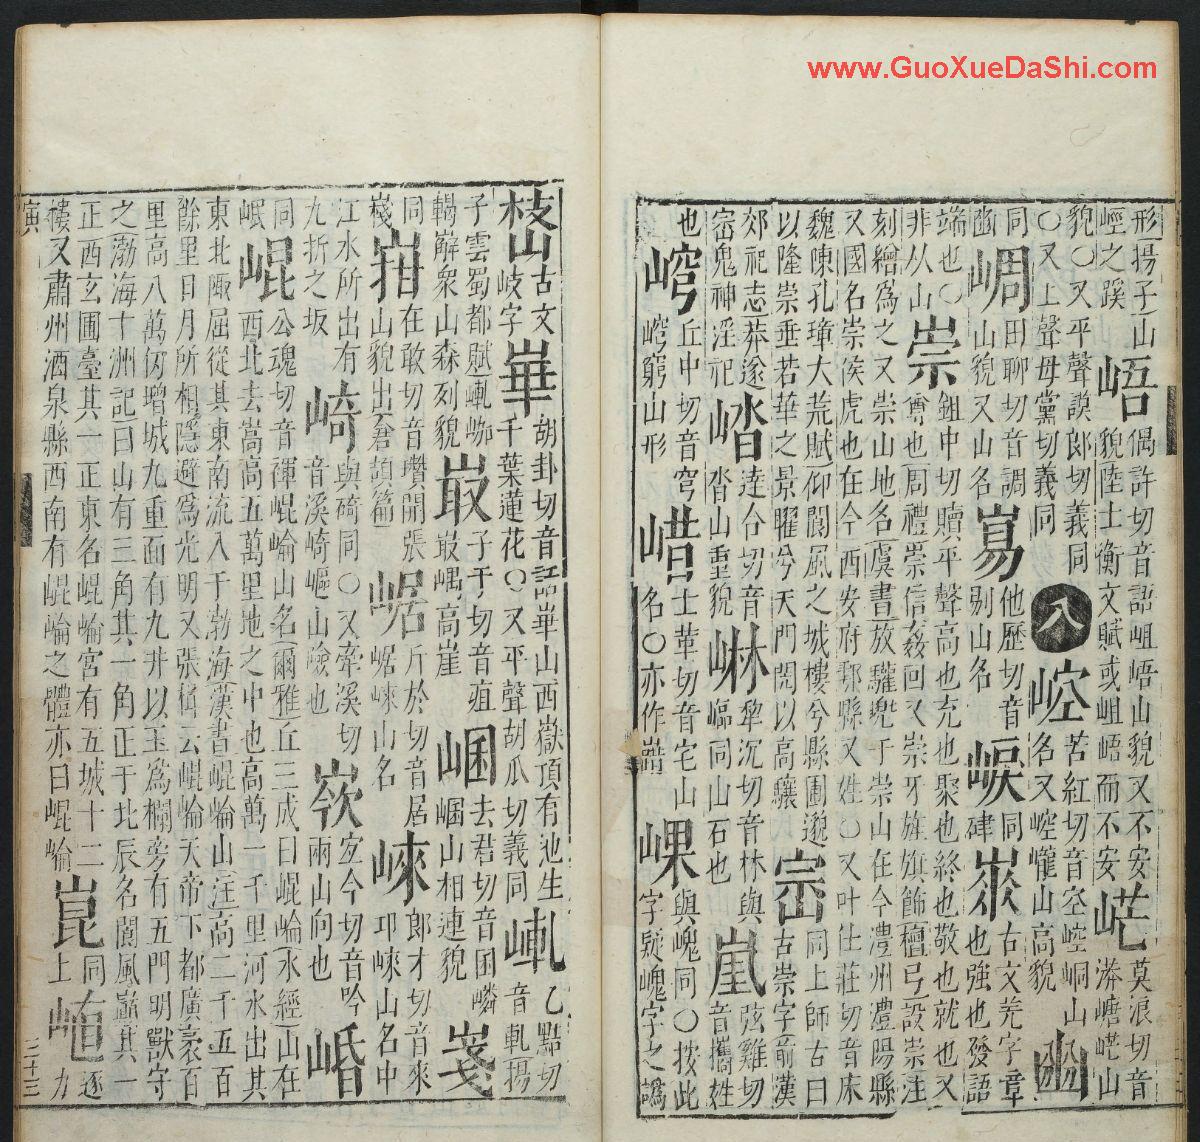 形揚子山之蹊 峿 偶許切音語岨峿山貌又不安貌陸士衡文賦或岨峿而不安 㟐 莫浪切音漭㟐山
貌〇又平聲謨郎切義同〇又上聲母黨切義同 八 崆 苦紅切音空崆峒山名又崆巄山高貌
同幽 㟘 田聊切音調山貌又山名 崵 他歷切音剔山名 㟑 同硉 古文羌字章也強也發語
端也〇非从山 崇 鉏中切贖平聲高也充也聚也終也敬也就也又尊也周禮崇信姦回又崇牙旗旗飾檀弓設崇注
刻繒爲之又崇山地名虞書放驩兜于崇山在今澧州澧陽縣又國名崇侯虎也在今西安府鄠縣又姓〇又叶仕莊切音床
魏陳孔璋大荒賦仰閬風之城樓兮縣圃邈以隆崇垂若華之景曜兮天門閌以高驤 崈 同上師古曰古崇字前漢
郊祀志莽遂崈鬼神淫祀 㟷 達合切音沓山重貌 崊 犂沉切音林與崊同山石也 嵐 弦雞切音攜姓
也 㟊 丘中切音穹㟊窮山形 㟙 士革切音宅山名〇亦作 㟳 與嵬同〇按此字疑嵬字之譌
㟚 古文岐字 崋 胡卦切音話崋山西嶽頂有池生千葉蓮花〇又平聲胡瓜切義同 乙黠切音軋揚
子雲蜀都賦崥輵嶰衆山森列貌 㝡 子于切音疽嵎高崖 崓 去君切音囷崓嶙山相連貌 㟞
同嶘 㟏 在敢切音瓚開張山貌出蒼頡篇 崌 斤於切音居崌崍山名 崍 郎才切音來邛崍山名中
江水所出有九折之坂 崎 與碕同〇又牽溪切音溪崎嶇山險也 嶔 宜今切音吟兩山向也 㟭
同岷 崐 公魂切音褌崐崘山名爾雅丘三成曰崐崘水經山在西北去嵩高五萬里地之中也高萬一千里河水出其
東北陬屈從其東南流入于渤海漢書崐崘山注高二千五百餘里日月所相隱避爲光明又張楫云崐崘天帝下都廣袤百
里高八萬仞增城九重面有九井以玉爲欄旁有五門明獸守之渤海十洲記曰山有三角其一角正于北辰名閬風巔其一
正西玄圃臺其一正東名崐崘宮有五城十二樓又肅州酒泉縣西南有崐崘之體亦曰崐崘 崑 同上 㟍 逐力
寅
三十三
www.GuoXueDaShi.com